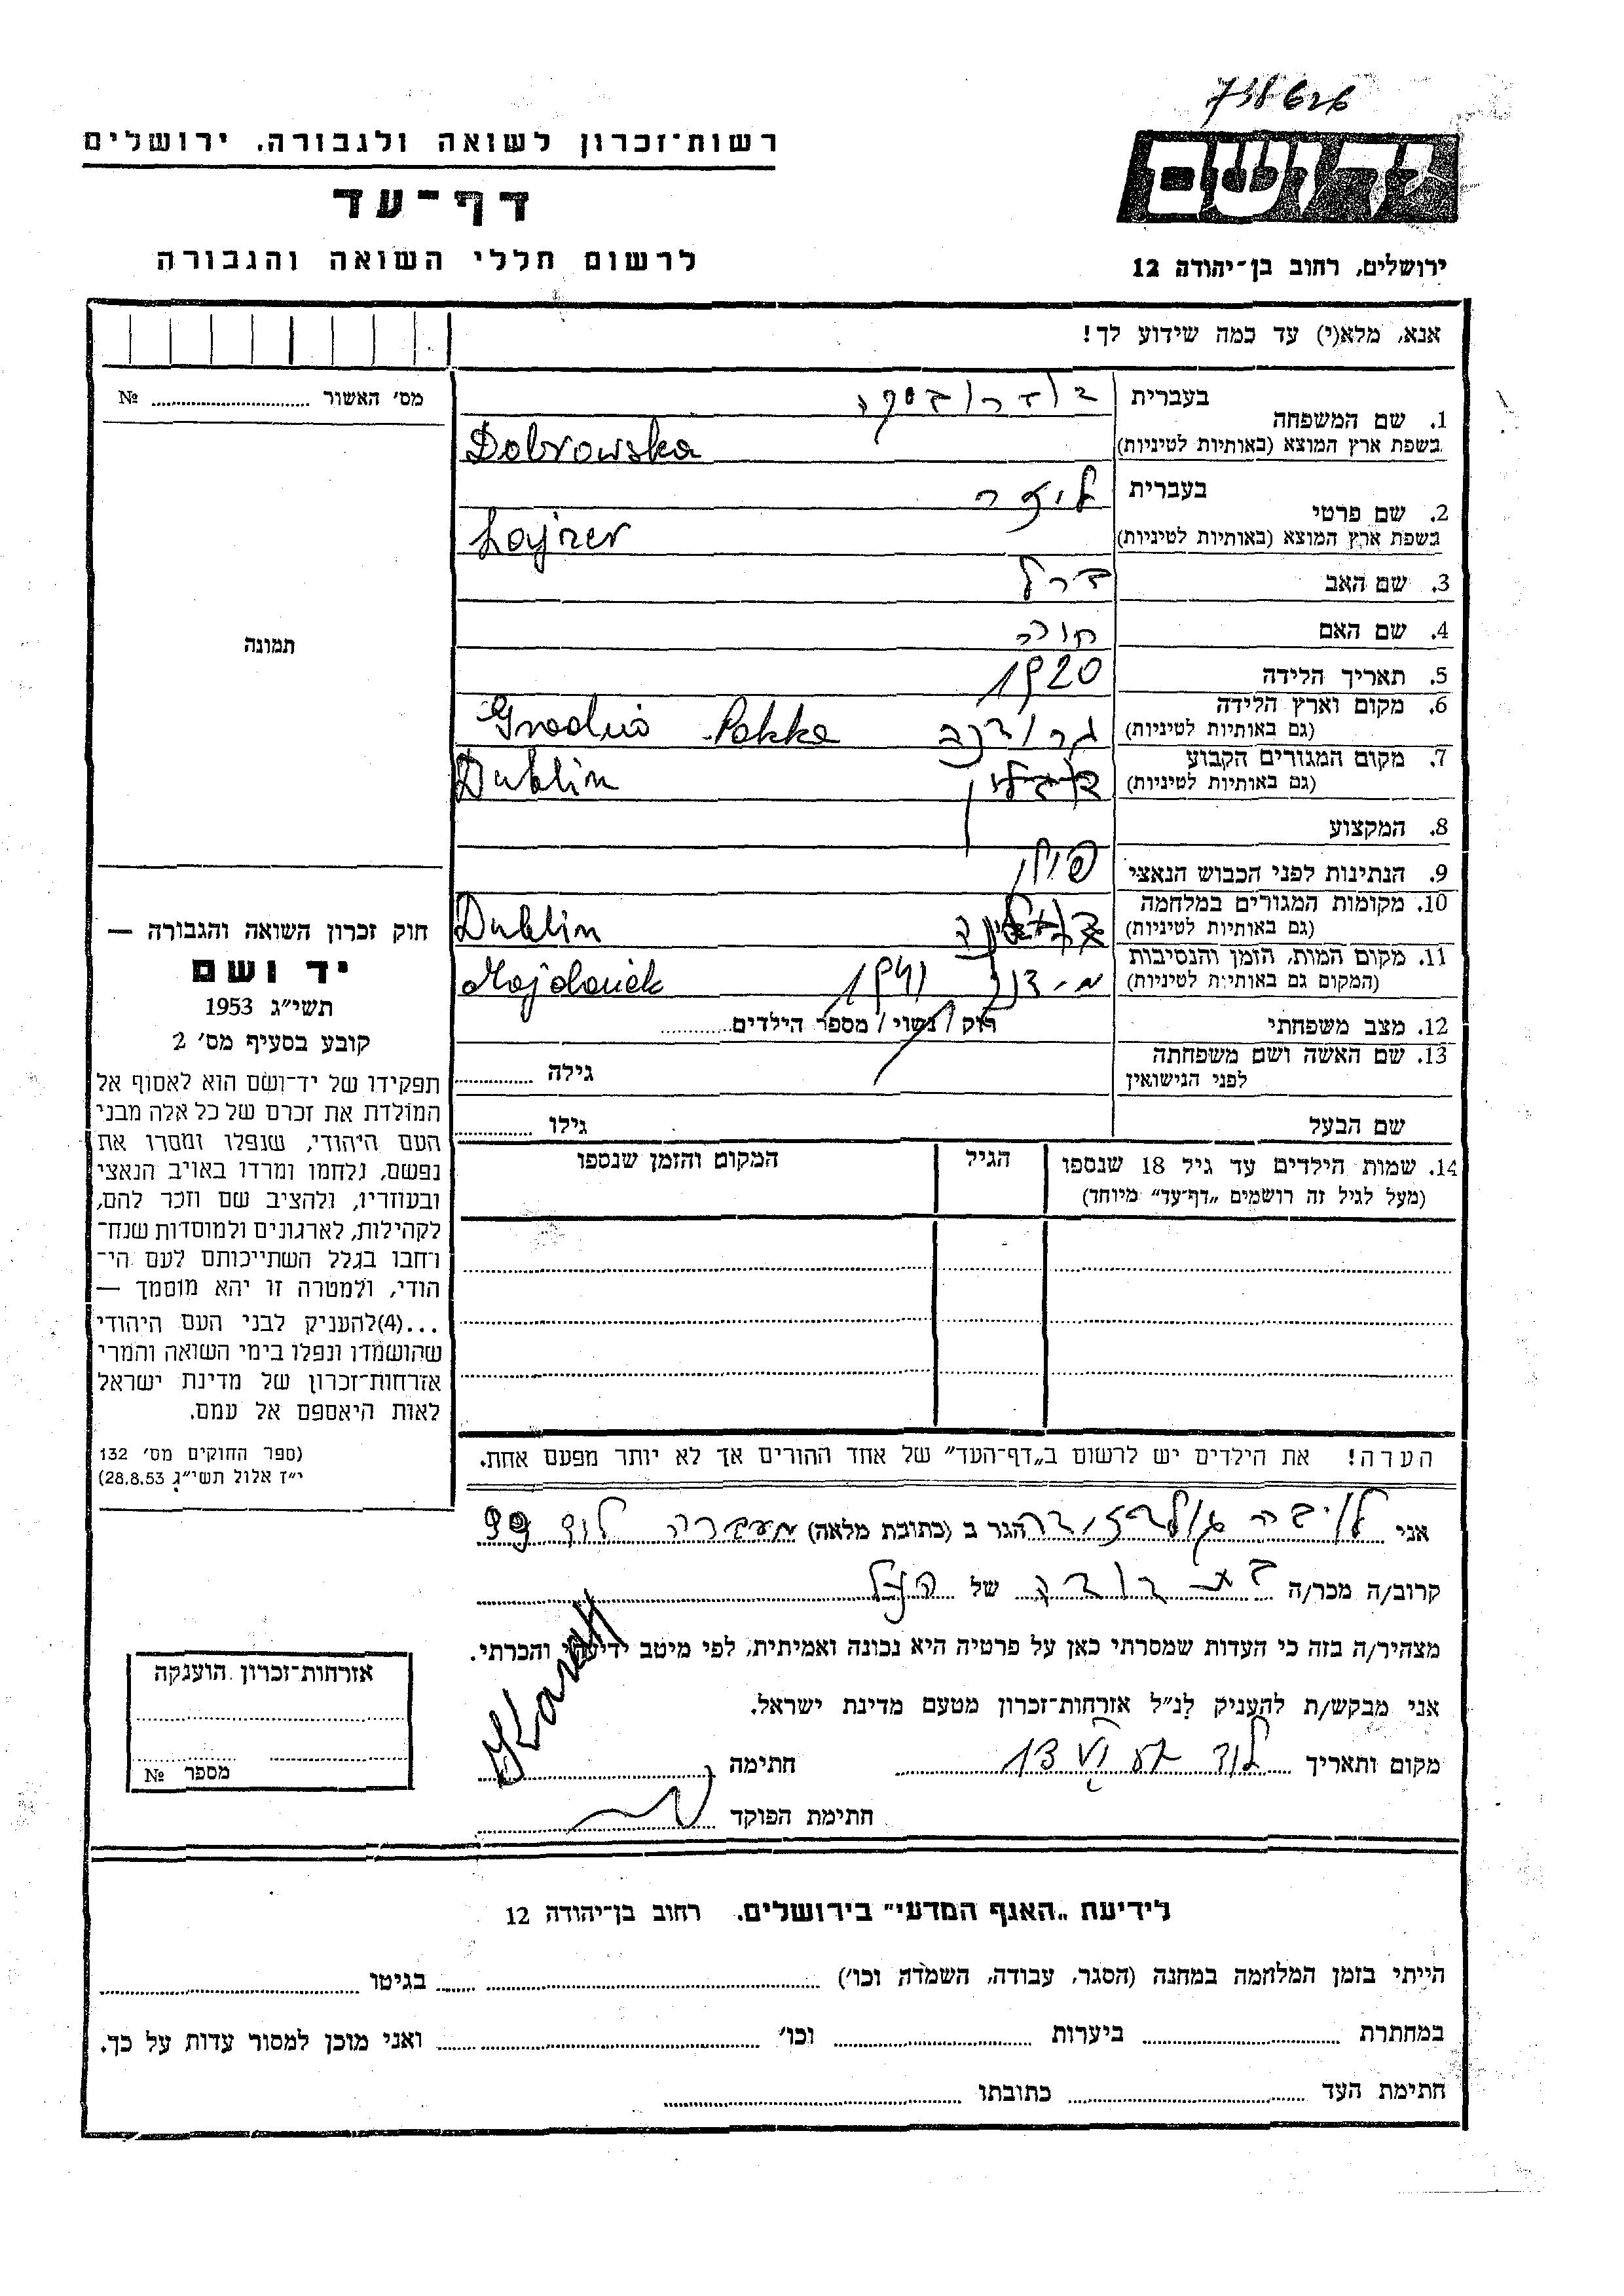 רשות־זכרון לשואה ולגבורה, ירושלים
דף־עד
לרשום חללי השואה והגבורה
ידושם
ירושלים, רחוב בן־יהודה 12
אנא, מלא(י) עד כמה שידוע לך!
מס׳ האשור № 
1. שם המשפחה בעברית
בשפת ארץ המוצא (באותיות לטיניות) Dobrowska
2. שם פרטי בעברית
בשפת ארץ המוצא (באותיות לטיניות) Lajzer
3. שם האב
4. שם האם
5. תאריך הלידה 1920
6. מקום וארץ הלידה
(גם באותיות לטיניות)
7. מקום המגורים הקבוע
(גם באותיות לטיניות) Dublin
8. המקצוע
9. הנתינות לפני הכבוש הנאצי
10. מקומות המגורים במלחמה
(גם באותיות לטיניות) Dublin
11. מקום המות, הזמן והנסיבות
(המקום גם באותיות לטיניות) 1941 Majdanek
12. מצב משפחתי רוק / נשוי / מספר הילדים
13. שם האשה ושם משפחתה
לפני הנישואין גילה
שם הבעל גילו
14. שמות הילדים עד גיל 18 שנספו הגיל המקום והזמן שנספו
(מעל לגיל זה רושמים „דף־עד” מיוחד)
הערה! את הילדים יש לרשום ב„דף־העד” של אחד ההורים אך לא יותר מפעם אחת.
תמונה
חוק זכרון השואה והגבורה —
יד ושם
תשי״ג 1953
קובע בסעיף מס׳ 2
תפקידו של יד־ושם הוא לאסוף אל
המולדת את זכרם של כל אלה מבני
העם היהודי, שנפלו ומסרו את
נפשם, נלחמו ומרדו באויב הנאצי
ובעוזריו, ולהציב שם וזכר להם,
לקהילות, לארגונים ולמוסדות שנח־
רחבו בגלל השתייכותם לעם הי־
הודי, ולמטרה זו יהא מוסמך —
...(4) להעניק לבני העם היהודי
שהושמדו ונפלו בימי השואה והמרי
אזרחות־זכרון של מדינת ישראל
לאות היאספם אל עמם.
(ספר החוקים מס׳ 132
י״ז אלול תשי״ג 28.8.53)
אני הגר ב (כתובת מלאה) מעברה לוד 99
קרוב/ה מכר/ה של הנ״ל
מצהיר/ה בזה כי העדות שמסרתי כאן על פרטיה היא נכונה ואמיתית, לפי מיטב ידיעתי והכרתי.
אני מבקש/ת להעניק לנ״ל אזרחות־זכרון מטעם מדינת ישראל.
מקום ותאריך לוד חתימה
חתימת הפוקד
אזרחות־זכרון הוענקה
מספר №
לידיעת „האגף המדעי” בירושלים, רחוב בן־יהודה 12
הייתי בזמן המלחמה במחנה (הסגר, עבודה, השמדה וכו׳) בגיטו
במחתרת ביערות וכו׳ ואני מוכן למסור עדות על כך.
חתימת העד כתובתו